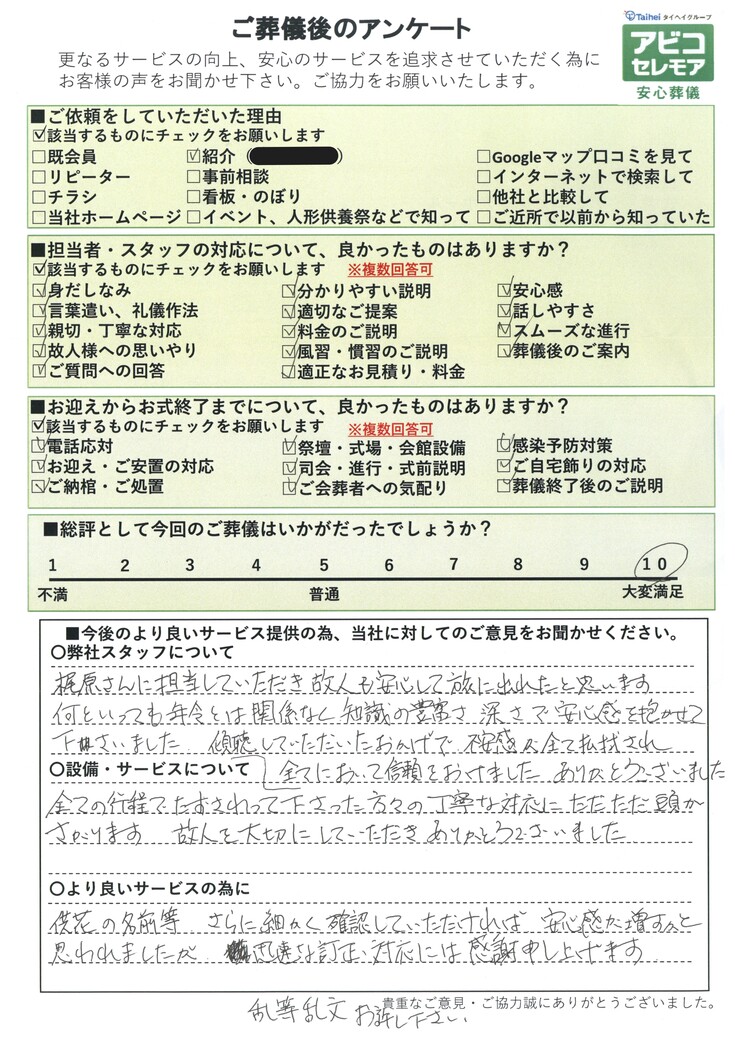 ご葬儀後のアンケート
Taihei タイヘイグループ
アビコ
セレモア
安心葬儀
更なるサービスの向上、安心のサービスを追求させていただく為に
お客様の声をお聞かせ下さい。ご協力をお願いいたします。
■ご依頼をしていただいた理由
☑該当するものにチェックをお願いします
□既会員 ☑紹介 □Googleマップ口コミを見て
□リピーター □事前相談 □インターネットで検索して
□チラシ □看板・のぼり □他社と比較して
□当社ホームページ □イベント、人形供養祭などで知って □ご近所で以前から知っていた
■担当者・スタッフの対応について、良かったものはありますか？
☑該当するものにチェックをお願いします ※複数回答可
☑身だしなみ ☑分かりやすい説明 ☑安心感
☑言葉遣い、礼儀作法 ☑適切なご提案 ☑話しやすさ
☑親切・丁寧な対応 ☑料金のご説明 ☑スムーズな進行
☑故人様への思いやり ☑風習・慣習のご説明 ☑葬儀後のご案内
☑ご質問への回答 ☑適正なお見積り・料金
■お迎えからお式終了までについて、良かったものはありますか？
☑該当するものにチェックをお願いします ※複数回答可
☑電話応対 ☑祭壇・式場・会館設備 ☑感染予防対策
☑お迎え・ご安置の対応 ☑司会・進行・式前説明 ☑ご自宅飾りの対応
☑ご納棺・ご処置 ☑ご会葬者への気配り ☑葬儀終了後のご説明
■総評として今回のご葬儀はいかがだったでしょうか？
1 2 3 4 5 6 7 8 9 10
不満 普通 大変満足
■今後のより良いサービス提供の為、当社に対してのご意見をお聞かせください。
〇弊社スタッフについて
梶原さんに担当していただき故人も安心して旅に出れたと思います
何といっても年令とは関係なく知識の豊富さ 深さで安心感を抱かせて
下さいました 傾聴していただいたおかげで 不安感は全て払拭され
〇設備・サービスについて 全てにおいて信頼をおけました ありがとうございました
全ての行程でたずさわって下さった方々の丁寧な対応にただただ頭が
さがります 故人を大切にしていただきありがとうございました
〇より良いサービスの為に
供花の名前等 さらに細かく確認していただければ 安心感が増すかと
思われましたが 迅速な訂正、対応には感謝申し上げます
貴重なご意見・ご協力誠にありがとうございました。
乱筆乱文 お許し下さい